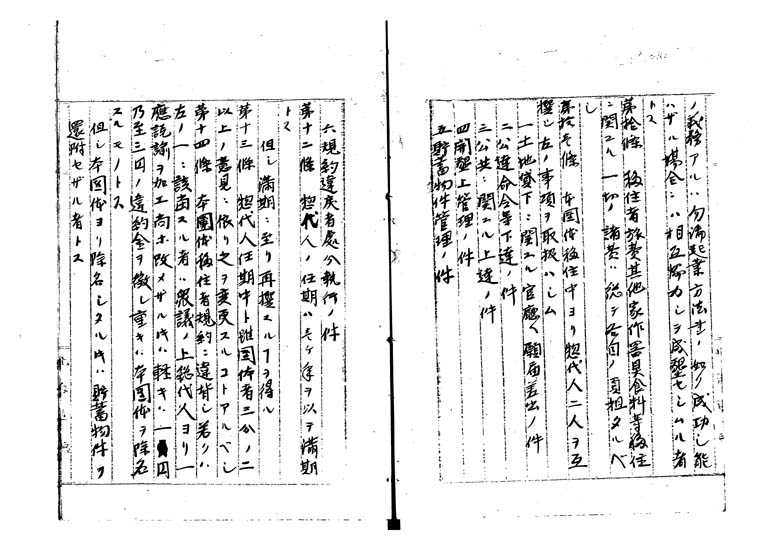 ノ義務アルハ勿論起業方法甘ノ如ノ成功シ能
ハザル場合ニハ相互協力シテ成墾セシムル者
トス
第拾條 移住者旅費其他家作器具食料等移住
ニ関スル一切ノ諸費ハ総テ各自ノ負担タルベ
シ
第拾壱條 本團体移住中ヨリ惣代人二人ヲ互
撰シ左ノ事項ヲ取扱ハシム
一土地貸下ニ関スル官廳ヘ願届差出ノ件
二公達命令等下達ノ件
三公共ニ関スル上達ノ件
四開墾上管理ノ件
五貯蓄物件管理ノ件
六規約違戻者處分執行ノ件
第十二條 惣代人ノ任期ハ壱ケ年ヲ以テ満期
トス
但シ満期ニ至リ再撰スルヿヲ得ル
第十三條 惣代人任期中ト雖團体者三分ノ二
以上ノ意見ニ依リ之ヲ変更スルコトアルベシ
第十四條 本團体移住者規約ニ違背シ若クハ
左ノ一ニ該当スル者ハ衆議ノ上総代人ヨリ一
應説諭ヲ加エ尚ホ改メザル時ハ軽キハ一円
乃至三円ノ違約金ヲ徴シ重キハ本團体ヲ除名
スルモノトス
但シ本團体ヨリ除名シタル時ハ貯蓄物件ヲ
還附セザル者トス